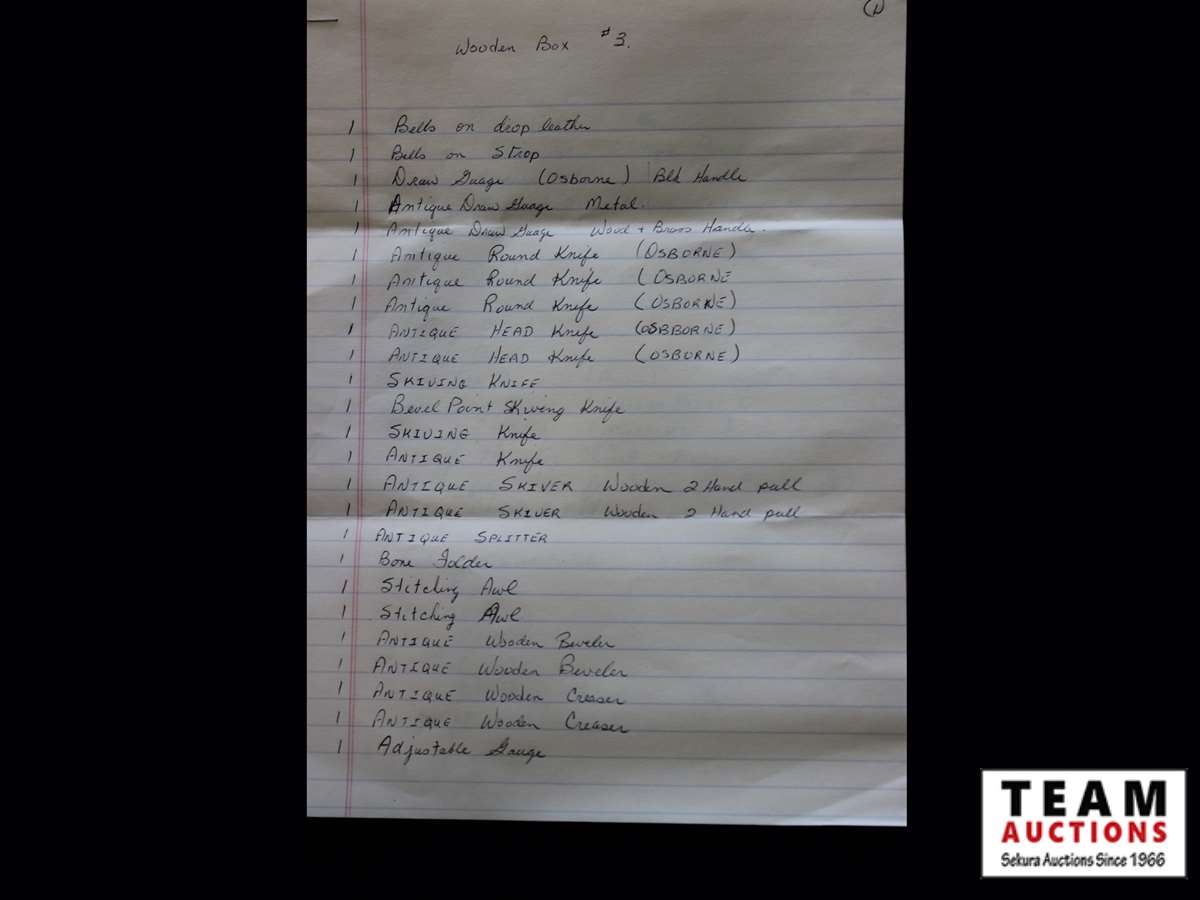 (1)
Wooden Box #3.
1 Bells on drop leather
1 Bells on Strop
1 Draw Guage (Osborne) Blk Handle
1 Antique Draw Guage Metal.
1 Antique Draw Guage Wood + Brass Handle.
1 Antique Round Knife (OSBORNE)
1 Antique Round Knife (OSBORNE
1 Antique Round Knife (OSBORNE)
1 ANTIQUE HEAD Knife (OSBBORNE)
1 ANTIQUE HEAD Knife (OSBORNE)
1 SKIVING KNIFE
1 Bevel Point Skiving Knife
1 SKIVING Knife
1 ANTIQUE Knife
1 ANTIQUE SKIVER Wooden 2 Hand pull
1 ANTIQUE SKIVER Wooden 2 Hand pull
1 ANTIQUE SPLITTER
1 Bone Folder
1 Stitching Awl
1 Stitching Awl
1 ANTIQUE Wooden Beveler
1 ANTIQUE Wooden Beveler
1 ANTIQUE Wooden Creaser
1 ANTIQUE Wooden Creaser
1 Adjustable Gauge
TEAM
AUCTIONS
Sekura Auctions Since 1966